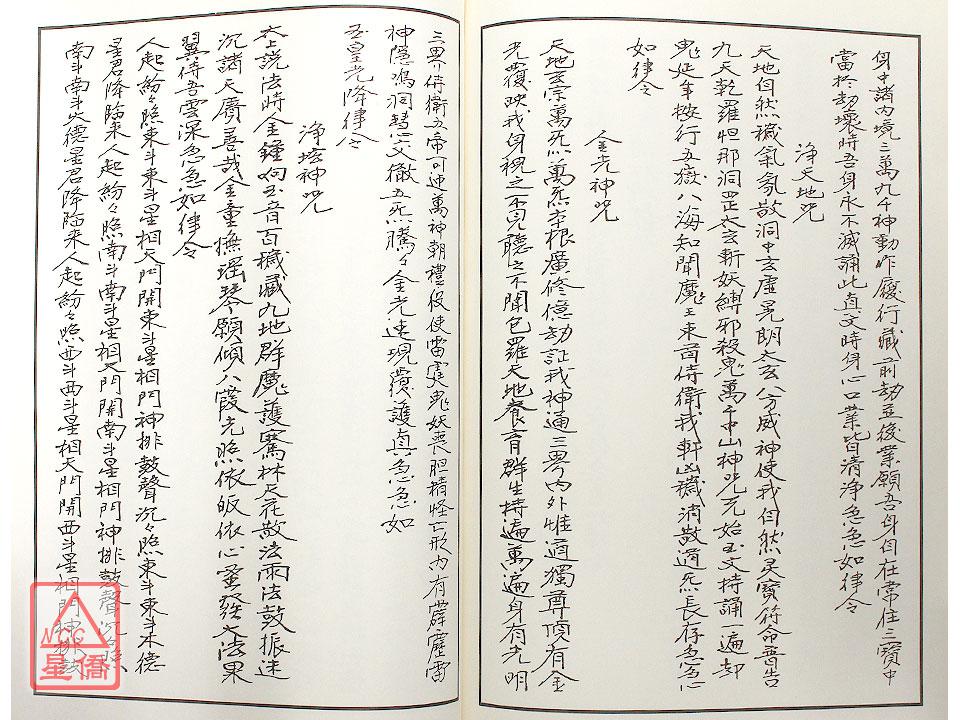 身中諸內境三萬九千神動作履行藏前劫並後業願吾身自在常住三寶中
當於劫壞時吾身永不滅誦此真文時身心口業皆清淨急急如律令
淨天地咒
天地自然穢氣氛散洞中玄虛晃朗太玄八方威神使我自然灵寶符命普告
九天乾羅怛那洞罡太玄斬妖縛邪殺鬼萬千中山神咒元始玉文持誦一遍却
鬼延年按行五嶽八海知聞魔王束首侍衛我軒凶穢消散道炁長存急急
如律令
金光神咒
天地玄宗萬炁本根廣修億劫証我神通三界內外惟道獨尊頂有金
光覆映我身視之不見聽之不聞包羅天地養育群生持遍萬遍身有光明
三界侍衛五帝司迎萬神朝禮役使雷霆鬼妖喪胆精怪亡形內有霹靂雷
神隱鳴洞慧交徹五炁騰々金光速現覆護真急急如
玉皇光降律令
淨壇神咒
太上說法時金鐘响玉音百穢藏九地群魔護騫林天花散法雨法鼓振迷
沉諸天賡善哉金童撫瑶琴願傾八霞光照依皈依心蚤發大法果
翼侍吾雲深急急如律令
人起紛々照東斗東斗星相天門開東斗星相門神排鼓聲沉々照東斗東斗木德
星君降臨來人起紛々照南斗南斗星相天門開南斗星相門神排鼓聲沉々照
南斗南斗火德星君降臨來人起紛々照西斗西斗星相天門開西斗星相門神排鼓
NCC
星僑